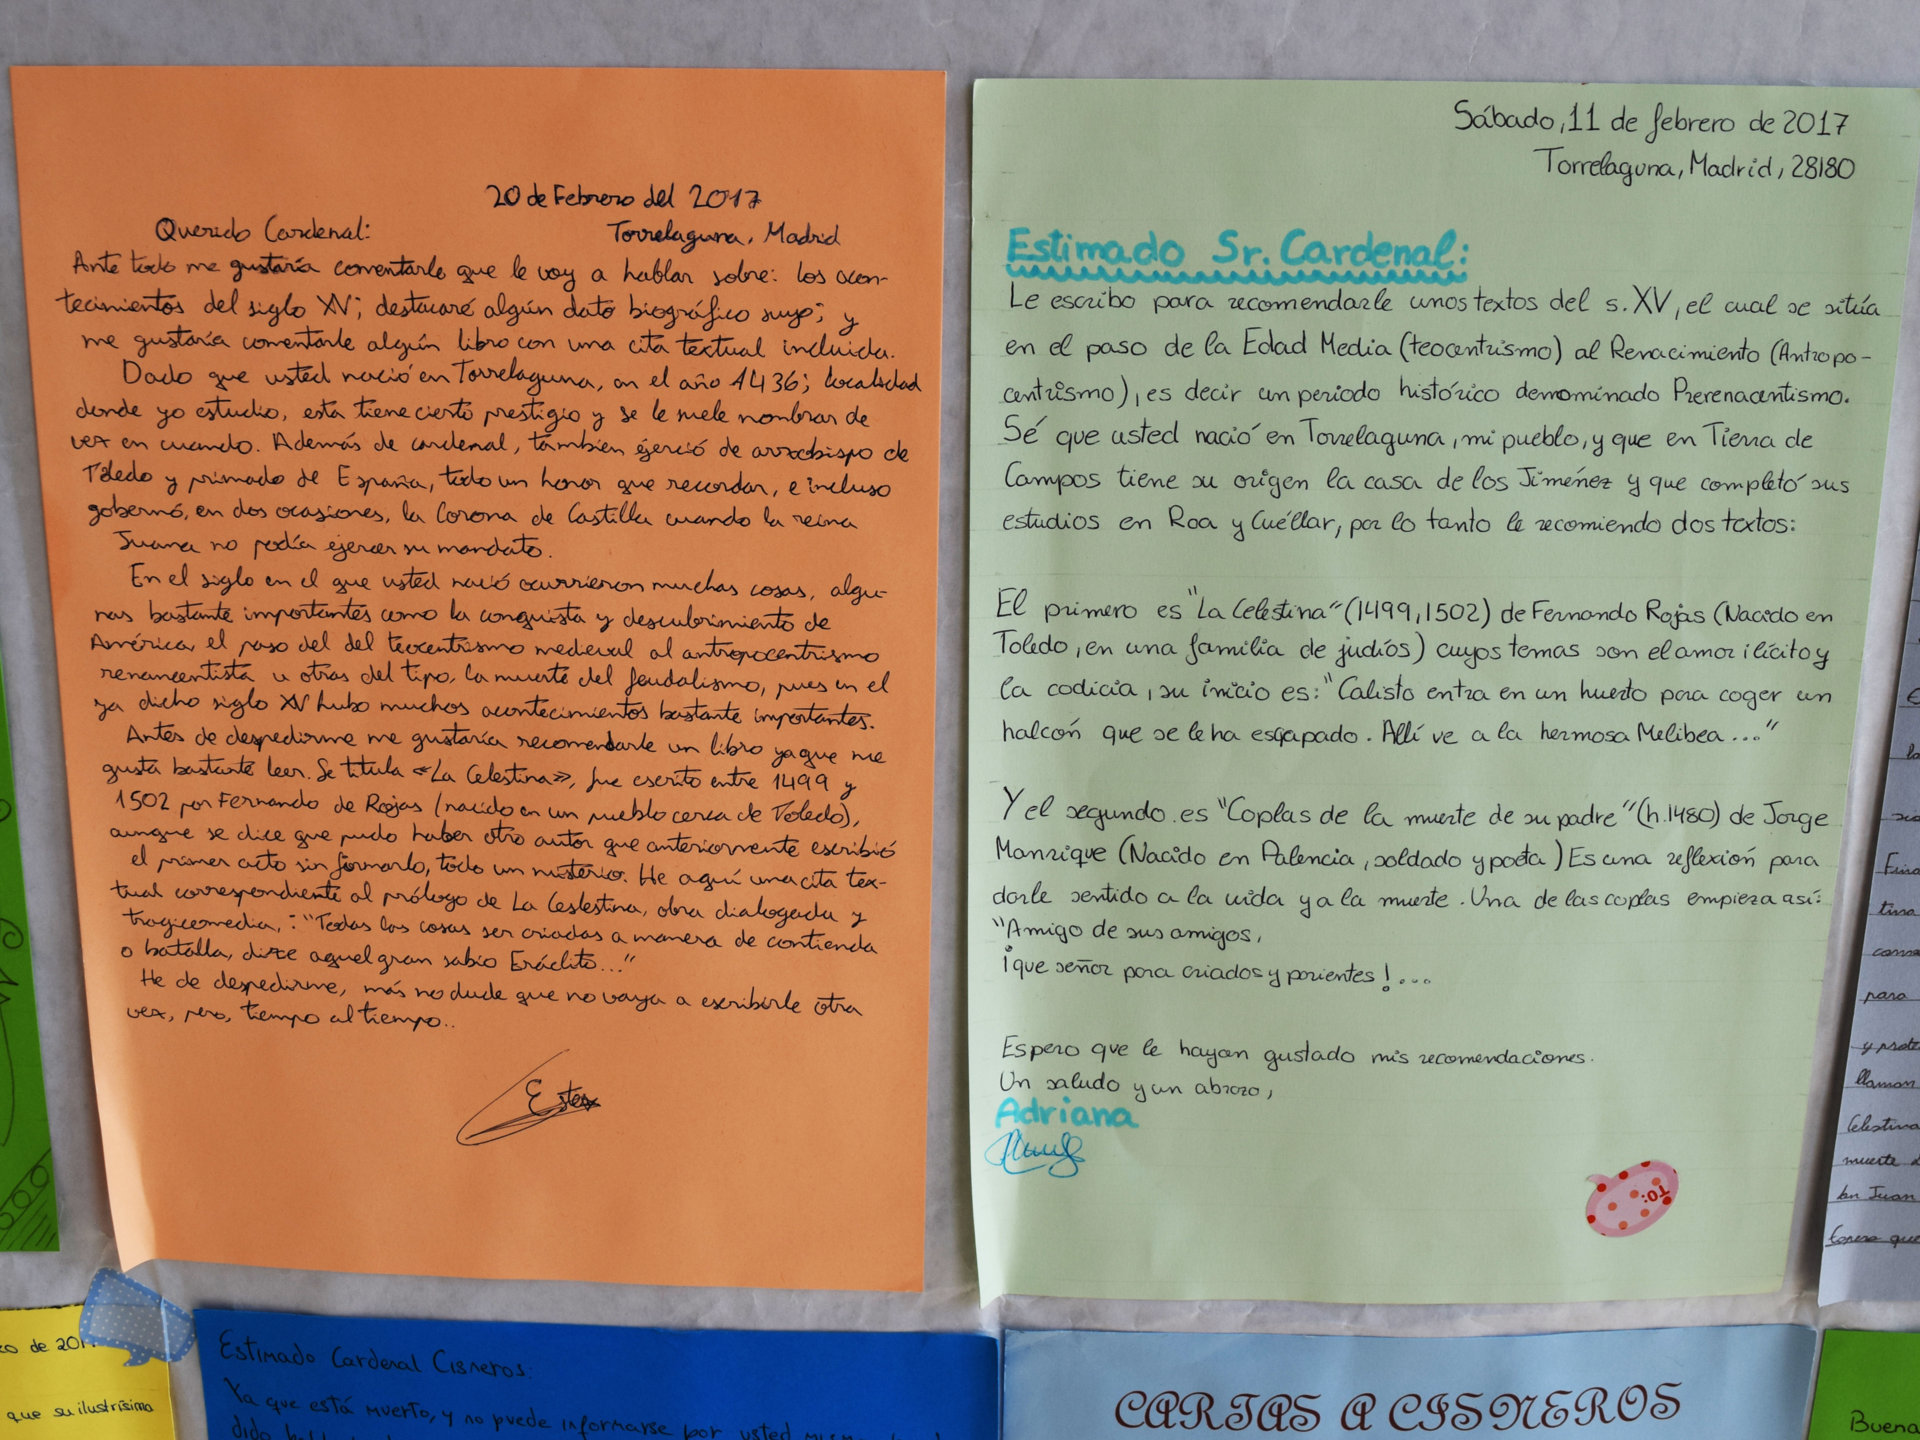 20 de Febrero del 2017
Querido Cardenal:
Torrelaguna, Madrid
Ante todo me gustaría comentarle que le voy a hablar sobre: los acon-
tecimientos del siglo XV; destacaré algún dato biográfico suyo; y
me gustaría comentarle algún libro con una cita textual incluida.
Dado que usted nació en Torrelaguna, en el año 1436; localidad
donde yo estudio, esta tiene cierto prestigio y se le suele nombrar de
vez en cuando. Además de cardenal, también ejerció de arzobispo de
Toledo y primado de España, todo un honor que recordar, e incluso
gobernó, en dos ocasiones, la Corona de Castilla cuando la reina
Juana no podía ejercer su mandato.
En el siglo en el que usted nació ocurrieron muchas cosas, algu-
nas bastante importantes como la conquista y descubrimiento de
América, el paso del del teocentrismo medieval al antropocentrismo
renancentista u otras del tipo, la muerte del feudalismo, pues en el
ya dicho siglo XV hubo muchos acontecimientos bastante importantes.
Antes de despedirme me gustaría recomendarle un libro ya que me
gusta bastante leer. Se titula «La Celestina», fue escrito entre 1499 y
1502 por Fernando de Rojas (nacido en un pueblo cerca de Toledo),
aunque se dice que pudo haber otro autor que anteriormente escribió
el primer acto sin firmarlo, todo un misterio. He aquí una cita tex-
tual correspondiente al prólogo de La Ceslestina, obra dialogada y
tragicomedia,: "Todas las cosas ser criadas a manera de contienda
o batalla, dize aquel gran sabio Eráclito..."
He de despedirme, más no dude que no vaya a escribirle otra
vez, pero, tiempo al tiempo..
Ester
Sábado, 11 de febrero de 2017
Torrelaguna, Madrid, 28180
Estimado Sr. Cardenal:
Le escribo para recomendarle unos textos del s. XV, el cual se sitúa
en el paso de la Edad Media (teocentrismo) al Renacimiento (Antropo-
centrismo), es decir un periodo histórico demominado Prerenacentismo.
Sé que usted nació en Torrelaguna, mi pueblo, y que en Tierra de
Campos tiene su origen la casa de los Jiménez y que completó sus
estudios en Roa y Cuéllar, por lo tanto le recomiendo dos textos:
El primero es "La Celestina" (1499,1502) de Fernando Rojas (Nacido en
Toledo, en una familia de judíos) cuyos temas son el amor ilícito y
la codicia, su inicio es: "Calisto entra en un huerto para coger un
halcón que se le ha escapado. Allí ve a la hermosa Melibea..."
Y el segundo es "Coplas de la muerte de su padre" (h.1480) de Jorge
Manrique (Nacido en Palencia, soldado y poeta) Es una reflexión para
darle sentido a la vida y a la muerte. Una de las coplas empieza así:
"Amigo de sus amigos,
¡que señor para criados y parientes!...
Espero que le hayan gustado mis recomendaciones.
Un saludo y un abrazo,
Adriana
TO:
tina
para
llaman
Celestina
muerte
en Juan
Espero que
de 201
que su ilustrísima
Estimado Cardenal Cisneros:
Ya que está muerto, y no puede informarse por usted
CARTAS A CISNEROS
Buena